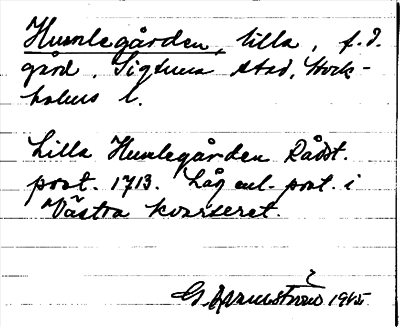 Humlegården, lilla, f.d.
gård. Sigtuna stad, Stock-
holms l.
Lilla Humlegården Rådst.
prot. 1713. Låg enl. prot. i
Västra kvarteret.
G. 1945